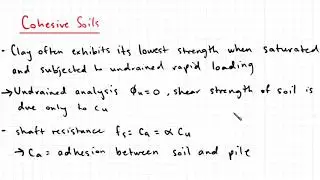 Cohesive Soils
- Clay often exhibits its lowest strength when saturated
and subjected to undrained rapid loading
→ Undrained analysis ϕu=0, shear strength of soil is
due only to cu
- shaft resistance fs = Ca = α Cu
→ Ca = adhesion between soil and pile